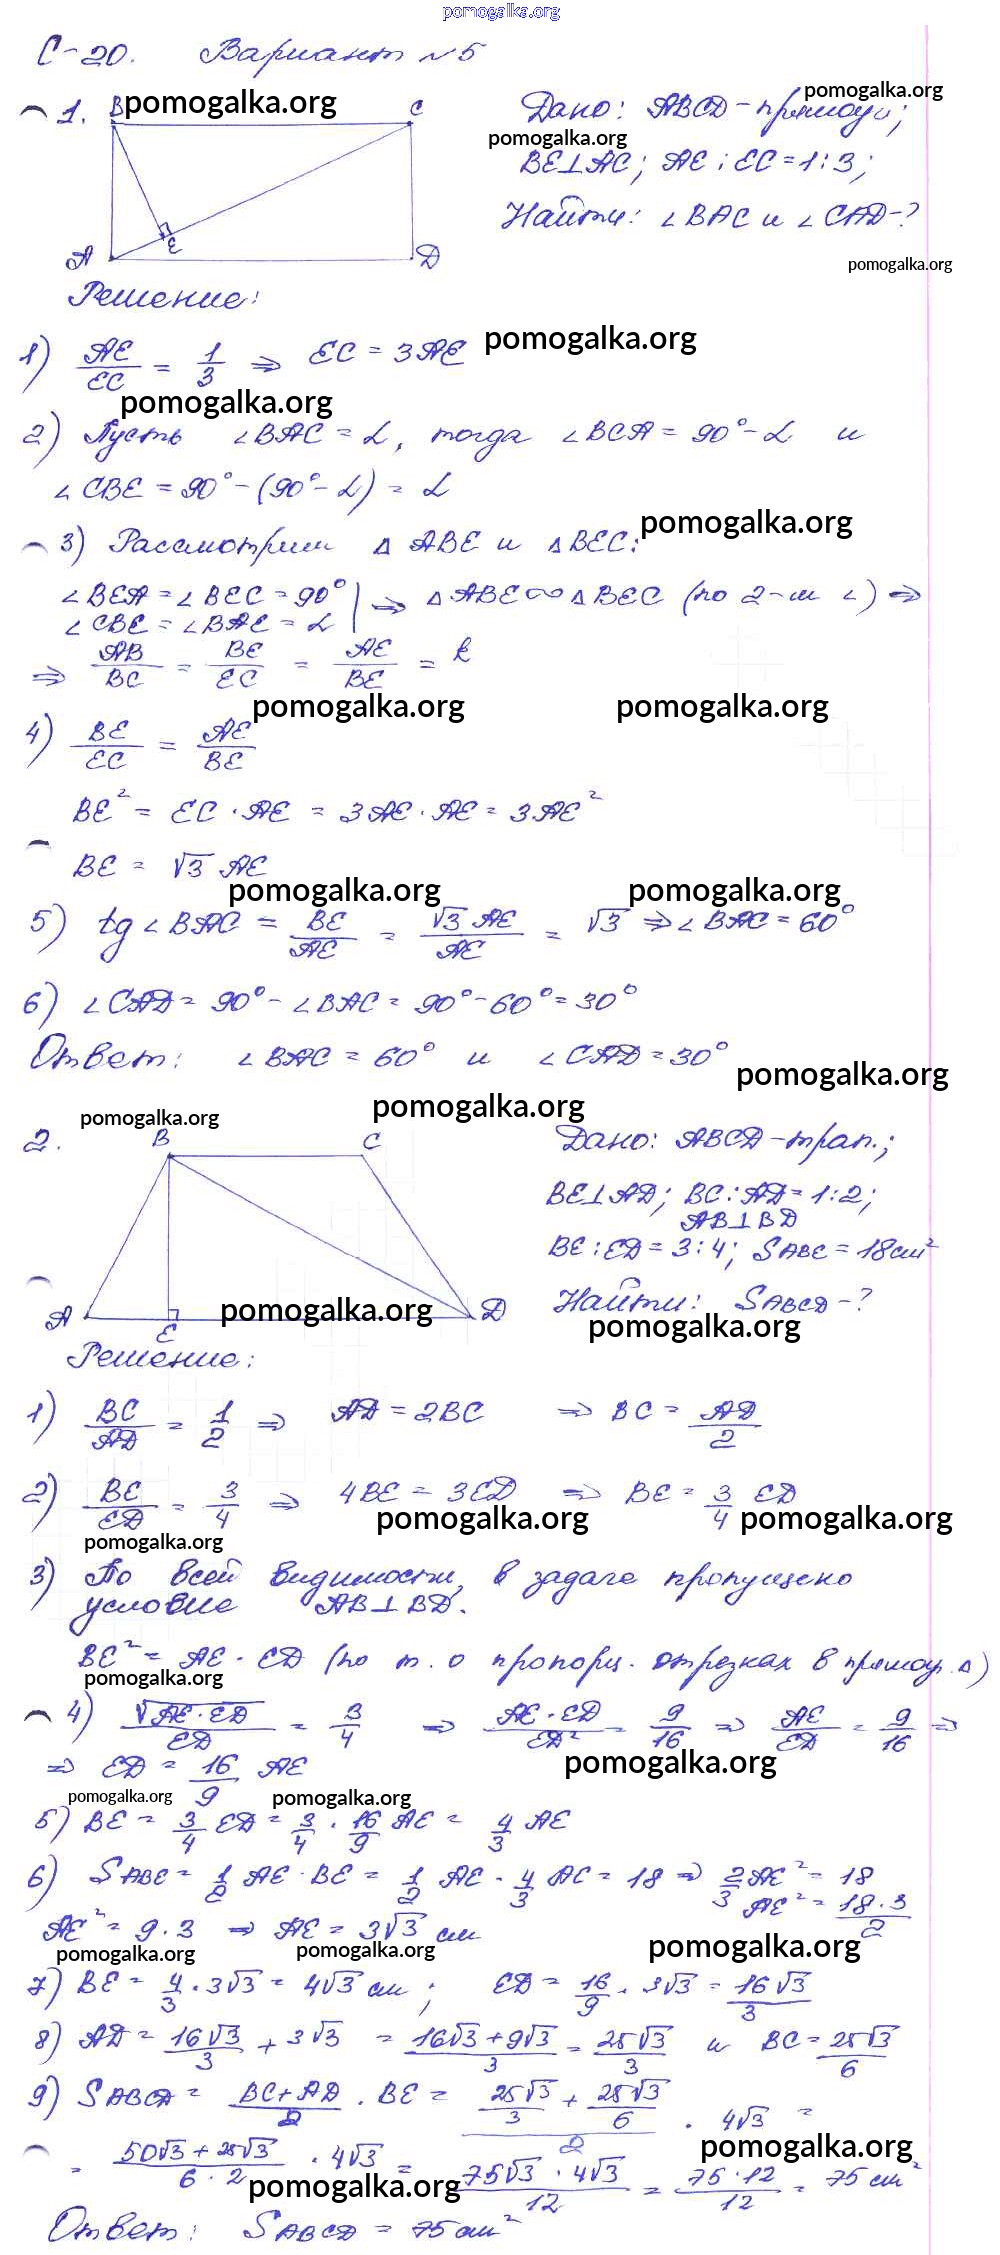 pomogalka.org
С-20. Вариант №5
1. B pomogalka.org C
Дано: ABCD - прямоу.; pomogalka.org
pomogalka.org
BE⊥AC; AE : EC = 1:3;
Найти: ∠BAC и ∠CAD - ?
A E D
pomogalka.org
Решение:
1) AE/EC = 1/3 ⇒ EC = 3AE pomogalka.org
pomogalka.org
2) Пусть ∠BAC = α, тогда ∠BCA = 90° - α и
∠CBE = 90° - (90° - α) = α
3) Рассмотрим △ABE и △BEC: pomogalka.org
∠BEA = ∠BEC = 90° | ⇒ △ABE ∞ △BEC (по 2-м ∠) ⇒
∠CBE = ∠BAE = α
⇒ AB/BC = BE/EC = AE/BE = k
pomogalka.org pomogalka.org
4) BE/EC = AE/BE
BE² = EC · AE = 3AE · AE = 3AE²
BE = √3 AE
pomogalka.org pomogalka.org
5) tg∠BAC = BE/AE = √3 AE/AE = √3 ⇒ ∠BAC = 60°
6) ∠CAD = 90° - ∠BAC = 90° - 60° = 30°
Ответ: ∠BAC = 60° и ∠CAD = 30°
pomogalka.org
pomogalka.org pomogalka.org
2. B C
Дано: ABCD - трап.;
BE⊥AD; BC : AD = 1:2;
AB⊥BD
BE : ED = 3:4; SABE = 18см²
Найти: SABCD - ?
A E pomogalka.org D
pomogalka.org
Решение:
1) BC/AD = 1/2 ⇒ AD = 2BC ⇒ BC = AD/2
2) BE/ED = 3/4 ⇒ 4BE = 3ED ⇒ BE = 3/4 ED
pomogalka.org pomogalka.org
pomogalka.org
3) По всей видимости, в задаче пропущено
условие AB⊥BD.
BE² = AE · ED (по т. о пропорц. отрезках в прямоуг. △)
pomogalka.org
4) √AE·ED/ED = 3/4 ⇒ AE·ED/ED² = 9/16 ⇒ AE/ED = 9/16 ⇒
⇒ ED = 16/9 AE pomogalka.org
pomogalka.org pomogalka.org
5) BE = 3/4 ED = 3/4 · 16/9 AE = 4/3 AE
6) SABE = 1/2 AE · BE = 1/2 AE · 4/3 AE = 18 ⇒ 2/3 AE² = 18
AE² = 18·3/2
AE² = 9·3 ⇒ AE = 3√3 см
pomogalka.org pomogalka.org pomogalka.org
7) BE = 4/3 · 3√3 = 4√3 см; ED = 16/9 · 3√3 = 16√3/3
8) AD = 16√3/3 + 3√3 = 16√3+9√3/3 = 25√3/3 и BC = 25√3/6
9) SABCD = BC+AD/2 · BE = 25√3/3 + 25√3/6/2 · 4√3 =
= 50√3 + 25√3/6·2 · 4√3 = 75√3 · 4√3/12 = 75·12/12 = 75 см²
pomogalka.org
pomogalka.org
Ответ: SABCD = 75см²